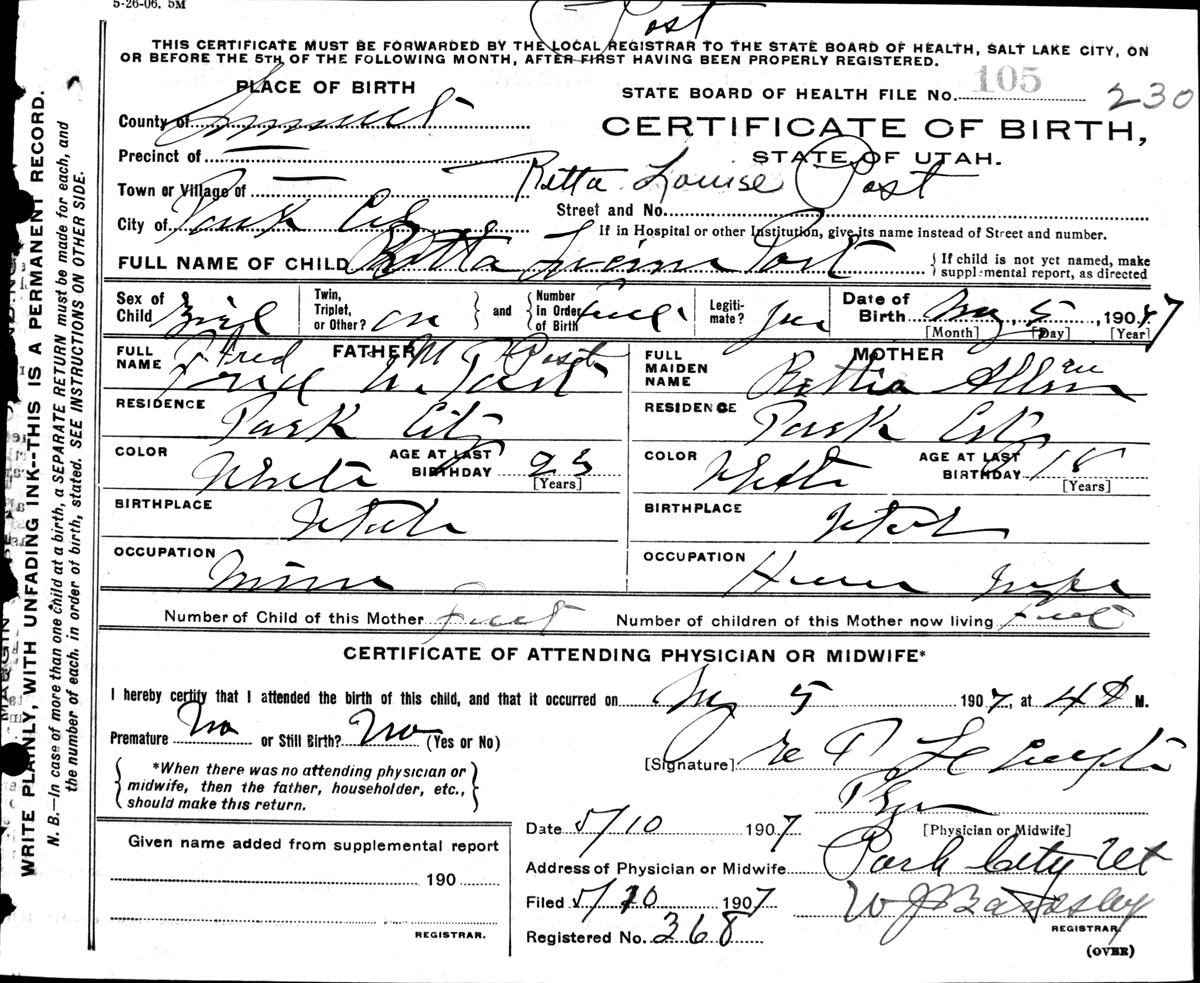 5-26-06. 5M
Post
THIS CERTIFICATE MUST BE FORWARDED BY THE LOCAL REGISTRAR TO THE STATE BOARD OF HEALTH, SALT LAKE CITY, ON
OR BEFORE THE 5TH OF THE FOLLOWING MONTH, AFTER FIRST HAVING BEEN PROPERLY REGISTERED.
PLACE OF BIRTH
STATE BOARD OF HEALTH FILE No. 105 230
County of Summit
CERTIFICATE OF BIRTH,
Precinct of —
STATE OF UTAH.
Town or Village of —
Retta Louise Post
Street and No.
City of Park City
If in Hospital or other Institution, give its name instead of Street and number.
FULL NAME OF CHILD Retta Post
{ If child is not yet named, make
supplemental report, as directed
Sex of Child Girl
Twin, Triplet, or Other? } and { Number in Order of Birth
Legiti- mate? yes
Date of Birth May 5, 1907
[Month] [Day] [Year]
FATHER
FULL NAME Fred M Post
Fred M Post
RESIDENCE Park City
COLOR White
AGE AT LAST BIRTHDAY 23
[Years]
BIRTHPLACE Utah
OCCUPATION Miner
MOTHER
FULL MAIDEN NAME
RESIDENCE Park City
COLOR White
AGE AT LAST BIRTHDAY 18
[Years]
BIRTHPLACE Utah
OCCUPATION House Wife
Number of Child of this Mother First Number of children of this Mother now living First
CERTIFICATE OF ATTENDING PHYSICIAN OR MIDWIFE*
I hereby certify that I attended the birth of this child, and that it occurred on May 5 1907, at 4 M.
Premature No or Still Birth? No (Yes or No)
[Signature]
{ *When there was no attending physician or
midwife, then the father, householder, etc.,
should make this return. }
Phys
[Physician or Midwife]
Date 5/10 1907
Address of Physician or Midwife Park City Ut
Filed 5/10 1907
W J Bardsley
REGISTRAR
Registered No. 368
(OVER)
Given name added from supplemental report
190
REGISTRAR.
WRITE PLAINLY, WITH UNFADING INK--THIS IS A PERMANENT RECORD.
N. B.—In case of more than one child at a birth, a SEPARATE RETURN must be made for each, and
the number of each, in order of birth, stated. SEE INSTRUCTIONS ON OTHER SIDE.